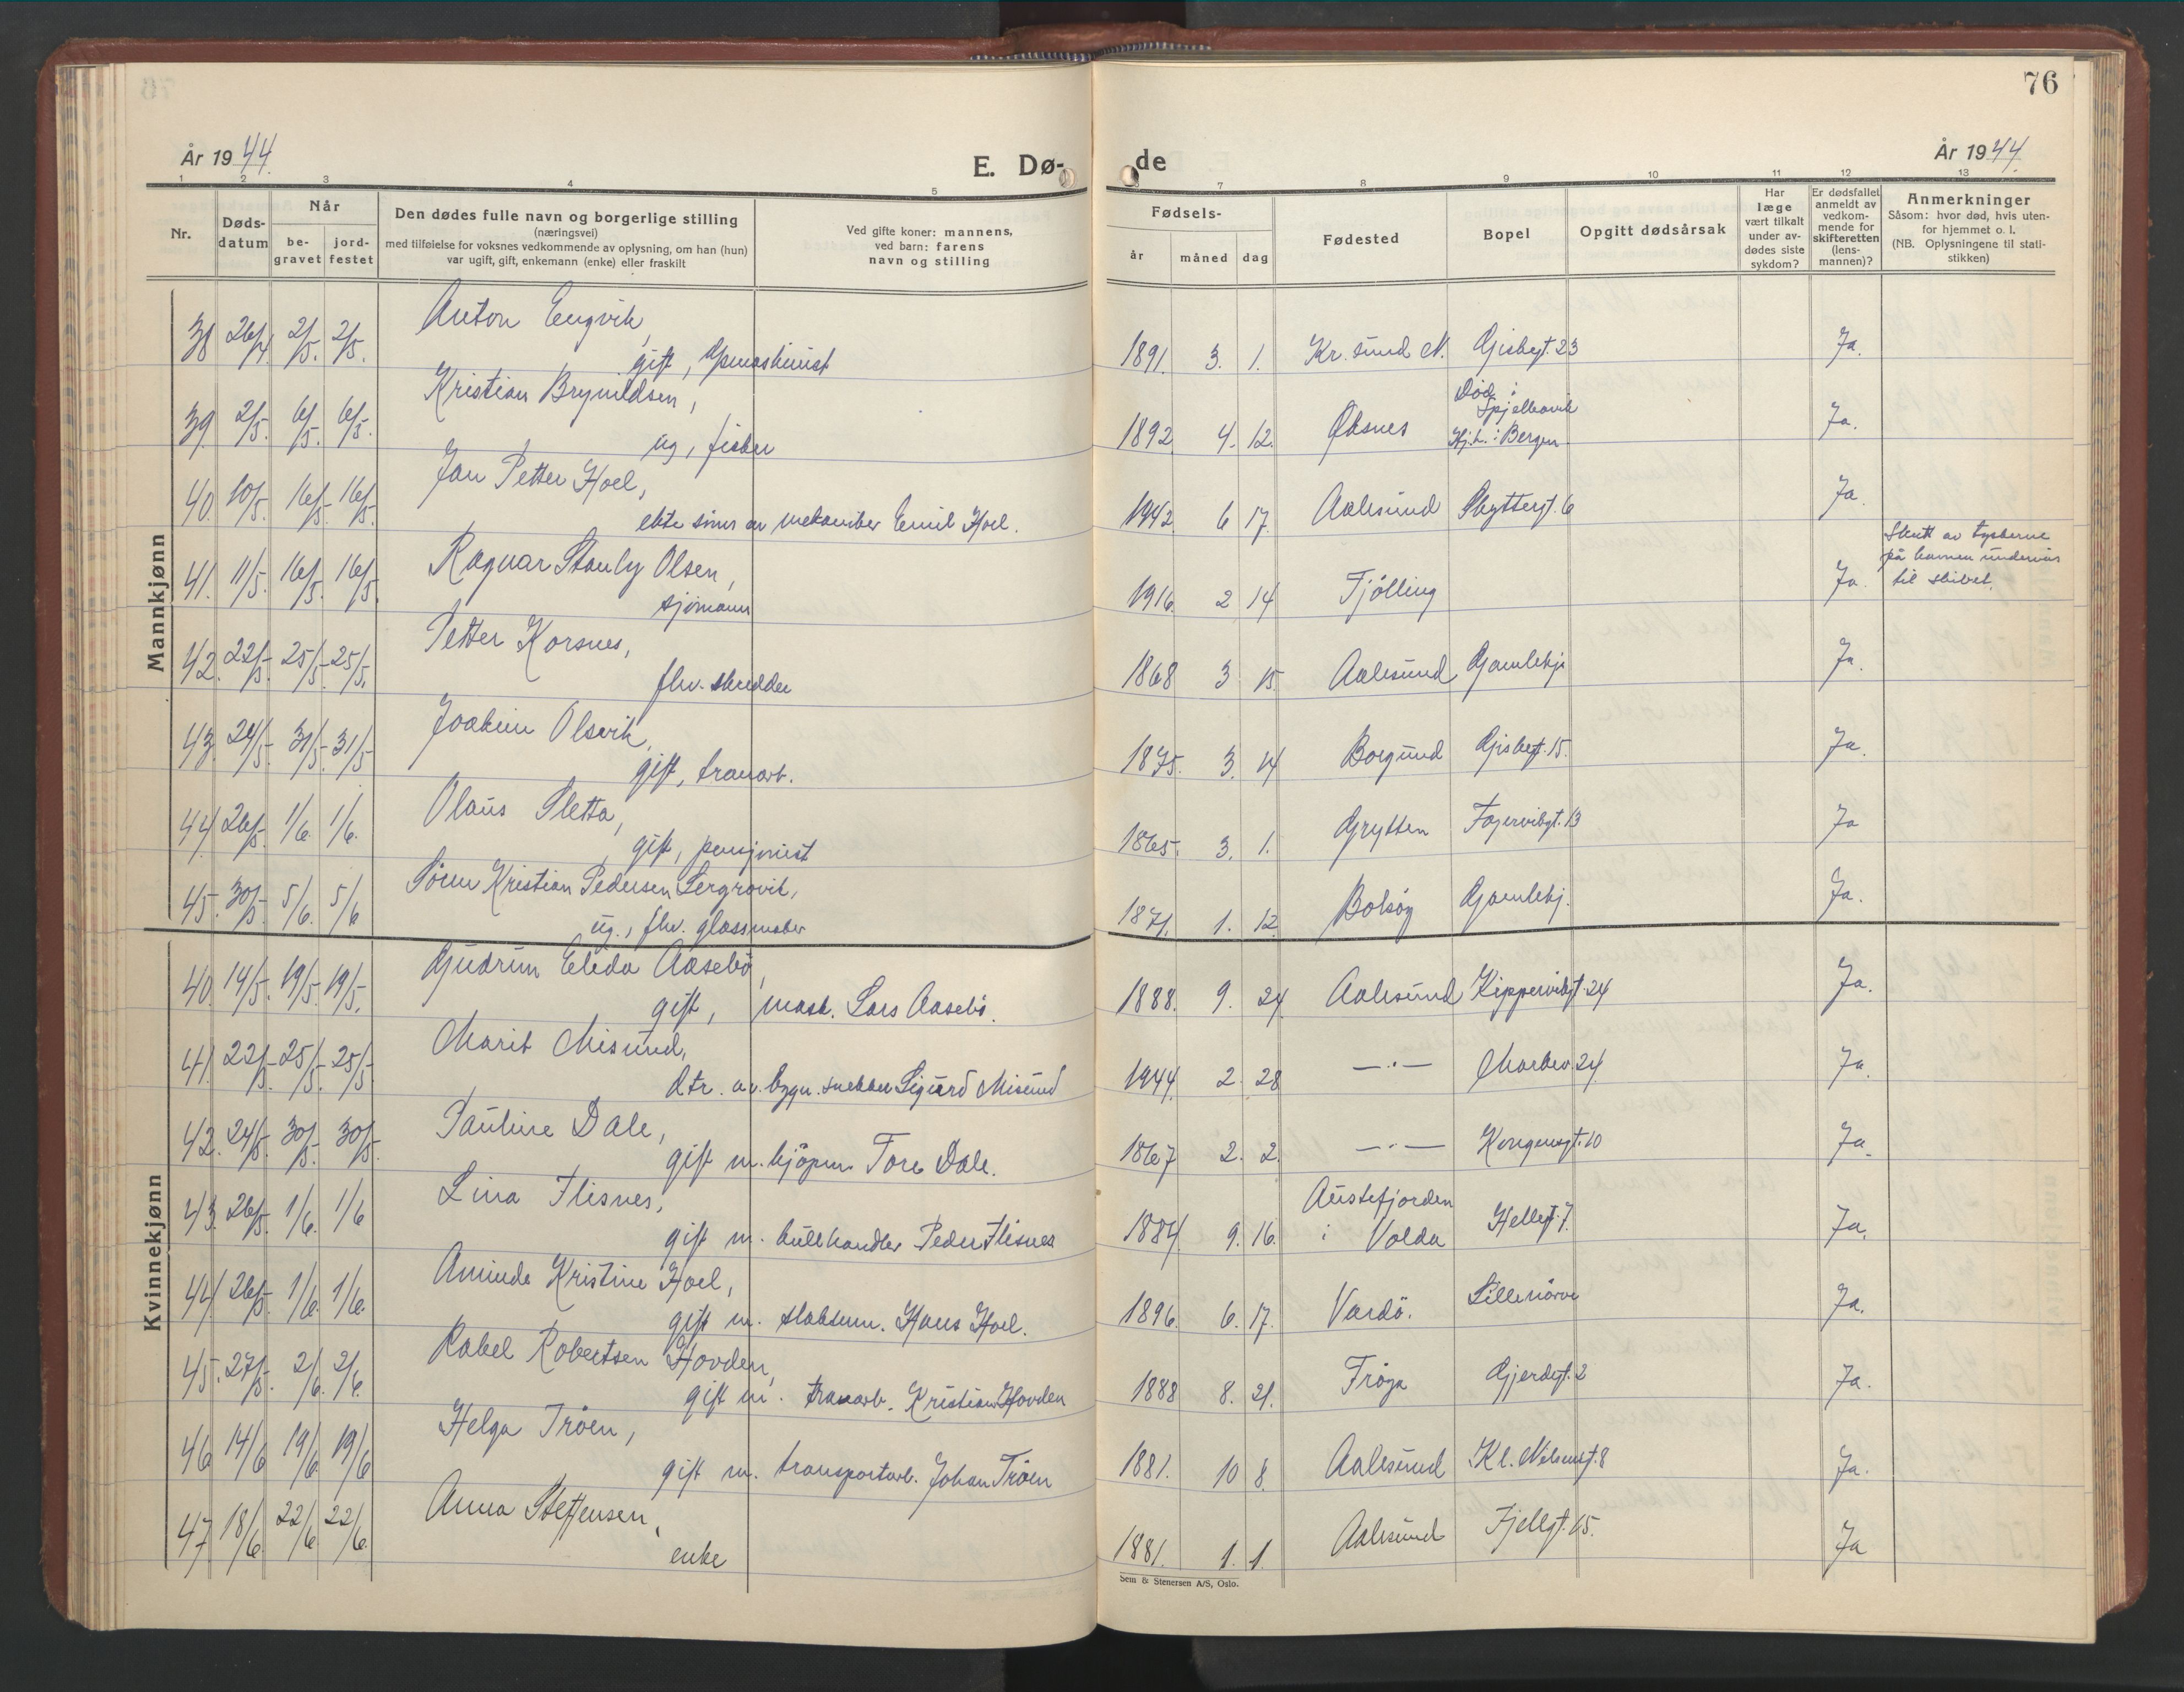 76
År 1944.
E. Dø-
de
År 1944.
1 2 3 4 5 6 7 8 9 10 11 12 13
Nr.
Døds-
datum
Når
be-
gravet
jord-
festet
Den dødes fulle navn og borgerlige stilling
(næringsvei)
med tilføielse for voksnes vedkommende av oplysning, om han (hun)
var ugift, gift, enkemann (enke) eller fraskilt
Ved gifte koner: mannens,
ved barn: farens
navn og stilling
Fødsels-
år måned dag
Fødested
Bopel
Opgitt dødsårsak
Har
læge
vært tilkalt
under av-
dødes siste
sykdom?
Er dødsfallet
anmeldt av
vedkom-
mende for
skifteretten
(lens-
mannen)?
Anmerkninger
Såsom: hvor død, hvis uten-
for hjemmet o. l.
(NB. Oplysningene til stati-
stikken)
Mannkjønn
Anton Engvik,
38 26/4. 2/5. 2/5. gift, 1891. 3. 1. Kr.sund N. 23 Ja.
Kristian Brynildsen,
Død i
Spjelkavik
39. 2/5. 6/5. 6/5. ug, fisker 1892. 4. 12. Øksnes Hj.h. i Bergen. Ja.
Jan Petter Hoel,
40. 10/5. 16/5. 16/5. ekte sønn av mekaniker Emil Hoel. 1942. 6 17. Aalesund Skyttergt. 6 Ja.
Ragnar Stanly Olsen,
Skutt av tyskerne
på havnen underveis
til skibet.
41. 11/5. 16/5. 16/5. sjømann 1916. 2 14 Tjölling Ja.
Petter Korsnes,
42. 22/5. 25/5. 25/5. fhv. skredder 1868 3 15 Aalesund Gamlehj. Ja.
Joakim Olsvik,
43. 24/5. 31/5. 31/5 gift, tranarb. 1875. 3. 14 Borgund 15. Ja.
Olaus Sletta,
44. 26/5. 1/6. 1/6. gift, pensjonist 1865. 3. 1. Grytten Fagervikgt. 13 Ja
Sören Kristian Pedersen
45. 30/5. 5/6. 5/6 ug., fhv. glassmaker 1871. 1. 12. Bolsöy Gamlehj. Ja.
Kvinnekjønn
Gudrun Elida Aasebö,
40. 14/5. 19/5. 19/5. gift, mask. Lars Aasebö. 1888. 9. 24. Aalesund Kippervikgt. 24 Ja.
Marit Misund,
41. 22/5. 25/5. 25/5. dtr. av bygn.snekker Sigurd Misund 1944. 2. 28 —·— 24 Ja.
Pauline Dale,
42. 24/5. 30/5. 30/5. gift m. kjöpm. Tore Dale. 1867 2. 2. —·— Kongensgt. 10 Ja.
Lina Flisnes,
Austefjorden
43. 26/5. 1/6. 1/6 gift m. kullhandler Peder Flisnes 1884. 9. 16. i Volda Hellegt. 7. Ja.
Aminda Kristine Hoel,
44. 26/5. 1/6. 1/6. gift m. Hans Hoel. 1896. 6. 17. Vardö. Lillenörve Ja.
Rakel Robertsen Hovden,
45. 27/5. 2/6. 2/6. gift m. tranarb. Kristian Hovden 1888 8. 21. Fröya Gjerdegt. 2 Ja.
Helga Tröen,
46 14/6 19/6 19/6 gift m. transportarb. Johan Tröen 1881. 10 8. Aalesund Kl. Nilsensgt. 8 Ja.
Anna Steffensen,
47 18/6. 22/6 22/6. enke 1881. 1. 1. Aalesund Fjellgt. 15. Ja
Sem & Stenersen A/S, Oslo.